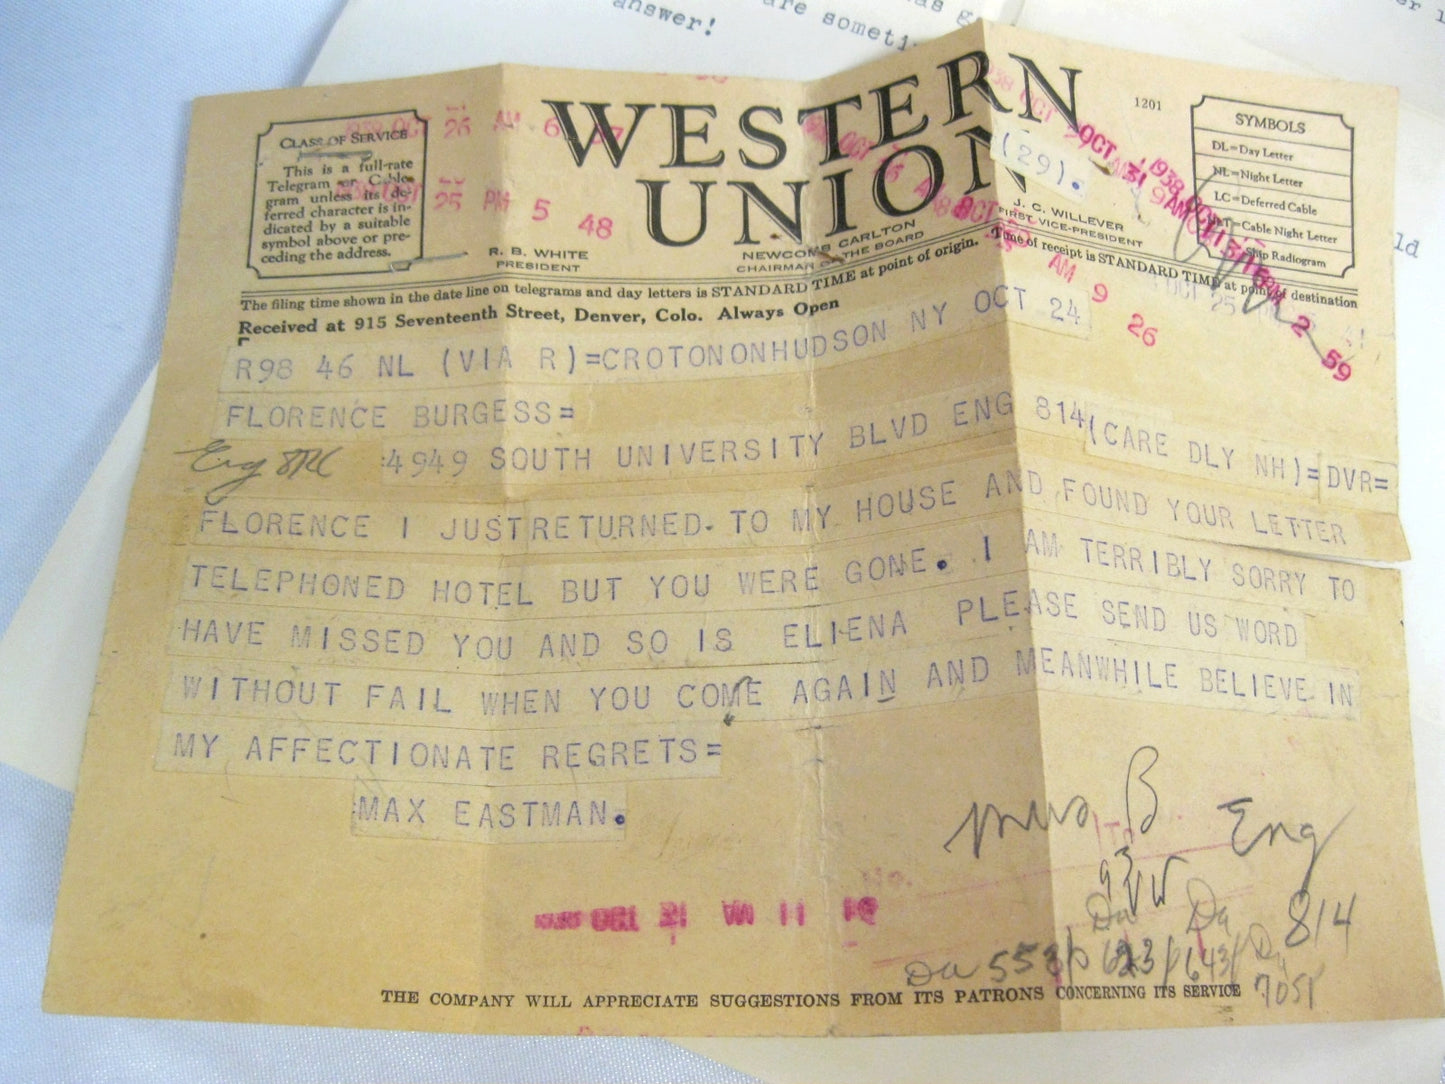 answer!
are someti
CLASS OF SERVICE
This is a full-rate
Telegram or Cable-
gram unless its de-
ferred character is in-
dicated by a suitable
symbol above or pre-
ceding the address.
WESTERN
UNION
1201
(29).
R. B. WHITE
PRESIDENT
NEWCOMB CARLTON
CHAIRMAN OF THE BOARD
J. C. WILLEVER
FIRST VICE-PRESIDENT
SYMBOLS
DL=Day Letter
NL=Night Letter
LC=Deferred Cable
NLT=Cable Night Letter
Ship Radiogram
1938 OCT 26 AM 6 37
1938 OCT 25 PM 5 48
AM 9 26
2 59
The filing time shown in the date line on telegrams and day letters is STANDARD TIME at point of origin. Time of receipt is STANDARD TIME at point of destination
Received at 915 Seventeenth Street, Denver, Colo. Always Open
R98 46 NL (VIA R)=CROTONONHUDSON NY OCT 24
FLORENCE BURGESS=
4949 SOUTH UNIVERSITY BLVD ENG 814(CARE DLY NH)=DVR=
FLORENCE I JUST RETURNED TO MY HOUSE AND FOUND YOUR LETTER
TELEPHONED HOTEL BUT YOU WERE GONE. I AM TERRIBLY SORRY TO
HAVE MISSED YOU AND SO IS ELIENA PLEASE SEND US WORD
WITHOUT FAIL WHEN YOU COME AGAIN AND MEANWHILE BELIEVE IN
MY AFFECTIONATE REGRETS=
MAX EASTMAN.
Mrs B Eng
814
Da Da
Da 553p 623p 643p Da 705p
THE COMPANY WILL APPRECIATE SUGGESTIONS FROM ITS PATRONS CONCERNING ITS SERVICE